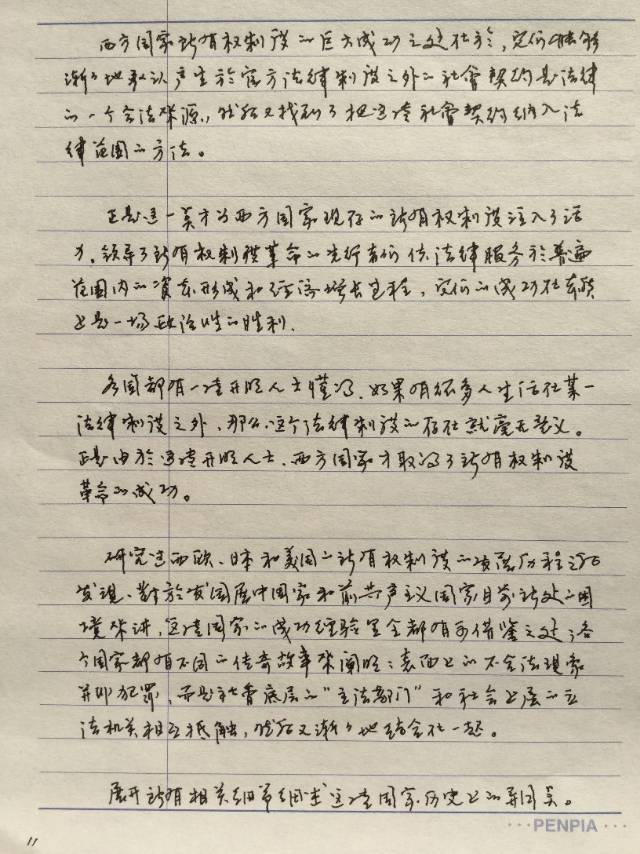 西方国家所有权制度的巨大成功之处在於,它们能够
渐渐地承认产生於官方法律制度之外的社會契约是法律
的一个合法来源,然后又找到了把这些社會契约纳入法
律范围的方法。
正是这一关才为西方国家现存的所有权制度注入了活
力,领导了所有权制度革命的先行者们使法律服务於普遍
范围内的资本形成和经济增长过程,它们的成功在本质
上是一场政治性的胜利.
各国都有一些开明人士懂得,如果有很多人生活在某一
法律制度之外,那么这个法律制度的存在就毫无意义。
正是由於这些开明人士,西方国家才取得了所有权制度
革命的成功。
研究过西欧、日本和美国的所有权制度的发展历程之后
发现,對於发展中国家和前共产主义国家目前所处的困
境来讲,这些国家的成功经验完全都有可借鉴之处;各
个国家都有不同的传奇故事来阐明:表面上的不合法现象
并非犯罪,而是社會底层的"立法部门"和社会上层的立
法机关相互抵触,然后又渐渐地结合在一起。
展开所有相关细节细述这些国家历史上的异同点。
PENPIA
11